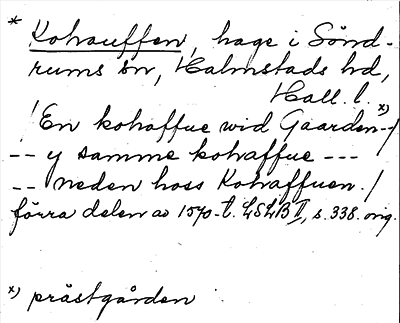 * Kohauffen, hage i Sönd-
rums sn, Halmstads hd,
Hall. l.
! En kohaffue wid Gaarden x) - /
-- y samme kohaffue ---
-- neden hoss Kohaffuen. /
förra delen av 1570-t. LSLB II, s. 338. orig.
x) prästgården